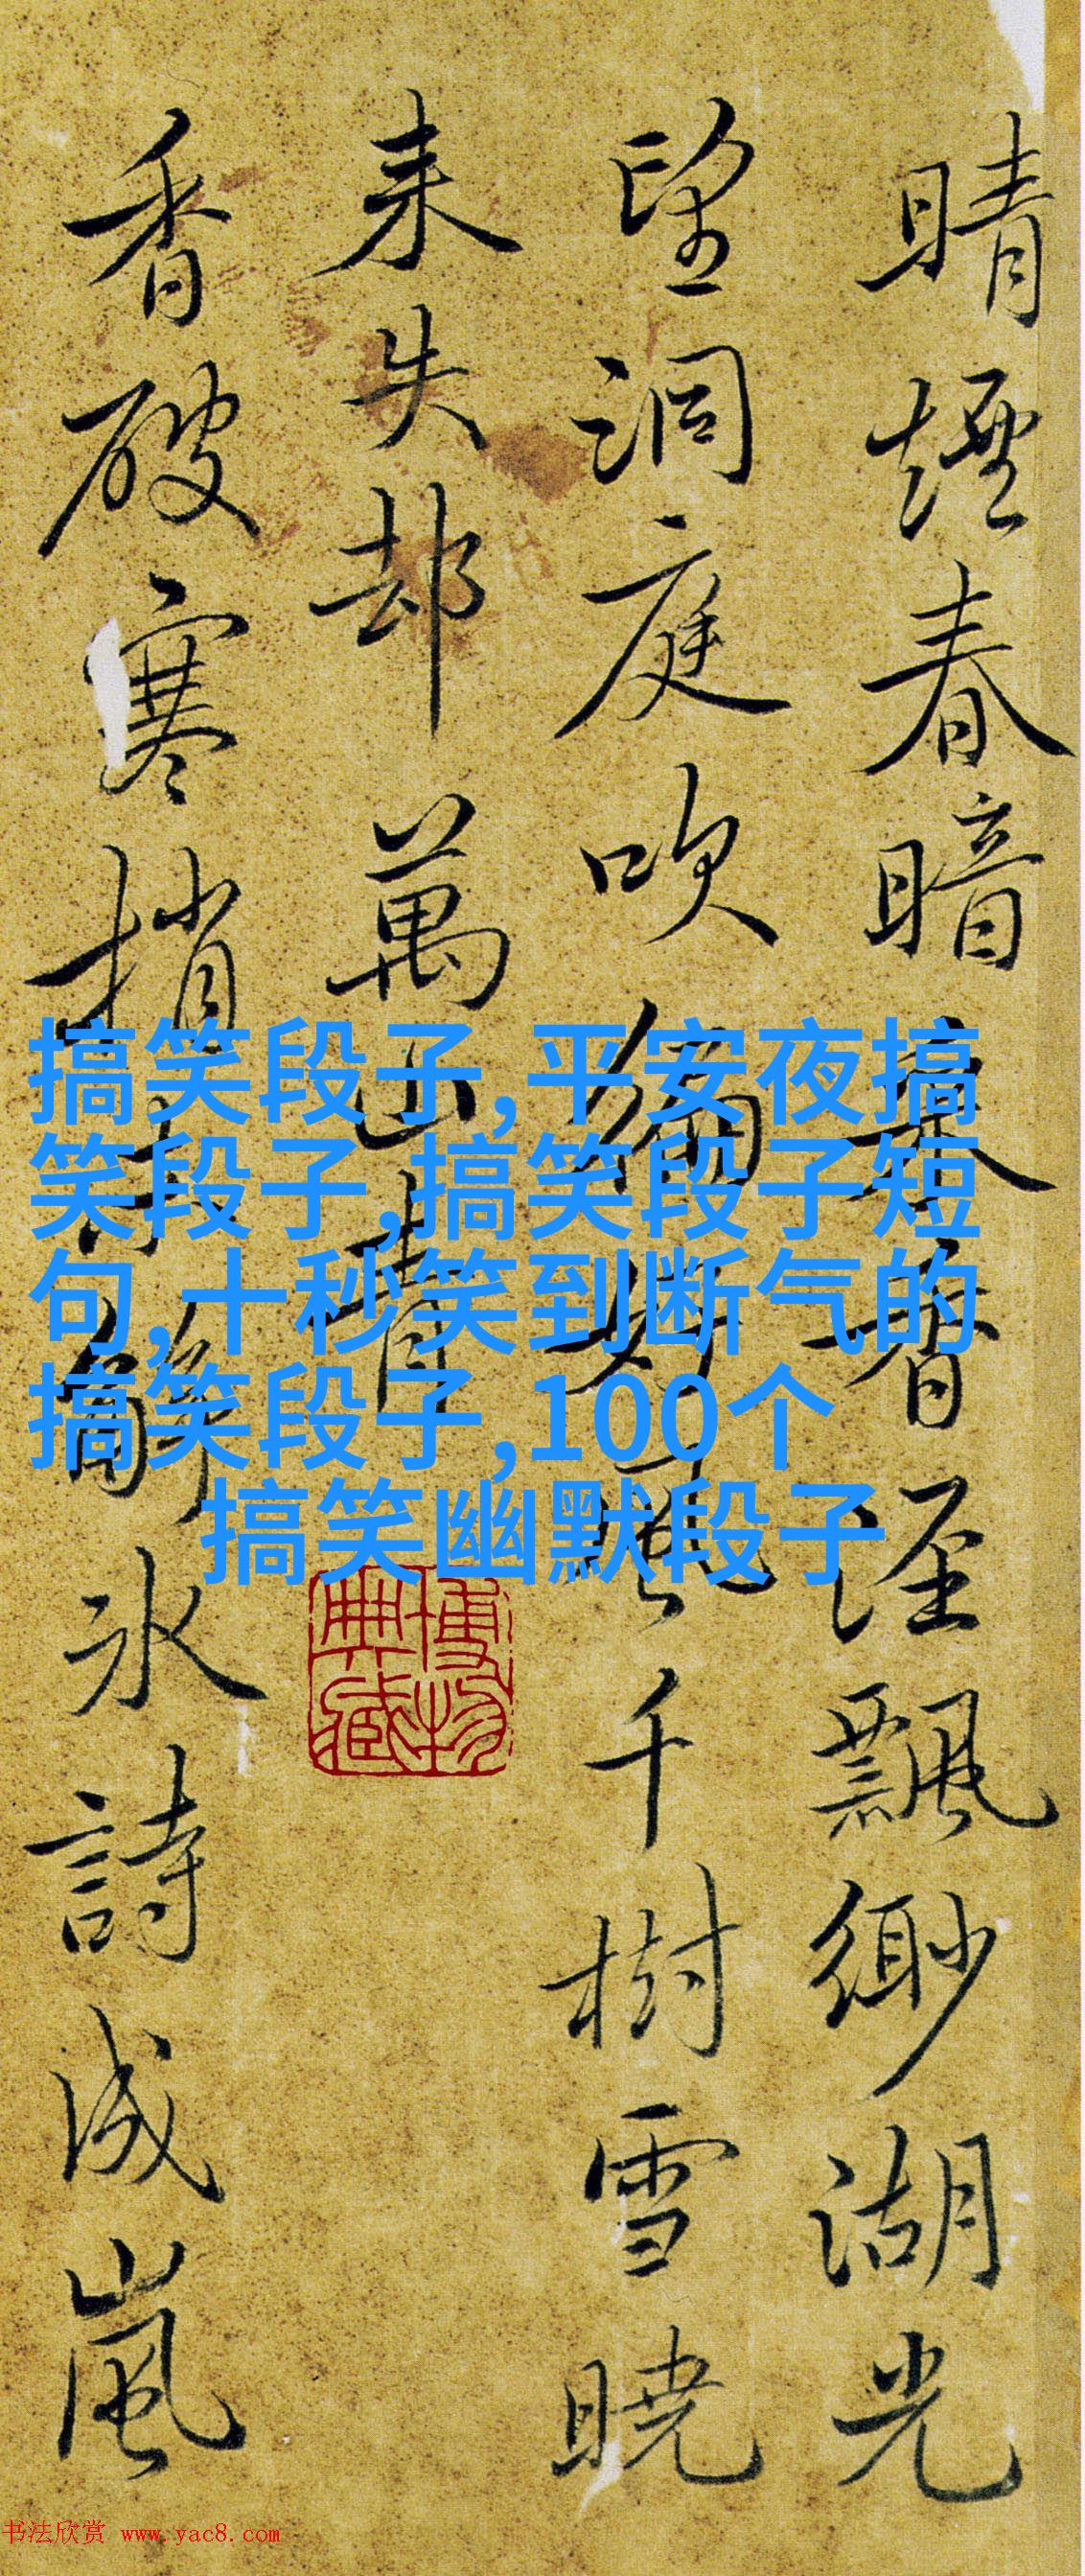 晴煙春暗香涇飄緲湖光
望洞庭吹徧風千樹雪曉
来失却萬山青
香破寒梢解冰詩成嵐
搞笑段子,平安夜搞
笑段子,搞笑段子短
句,十秒笑到断气的
搞笑段子,100个
搞笑幽默段子
博物
典藏
书法欣赏 www.yac8.com